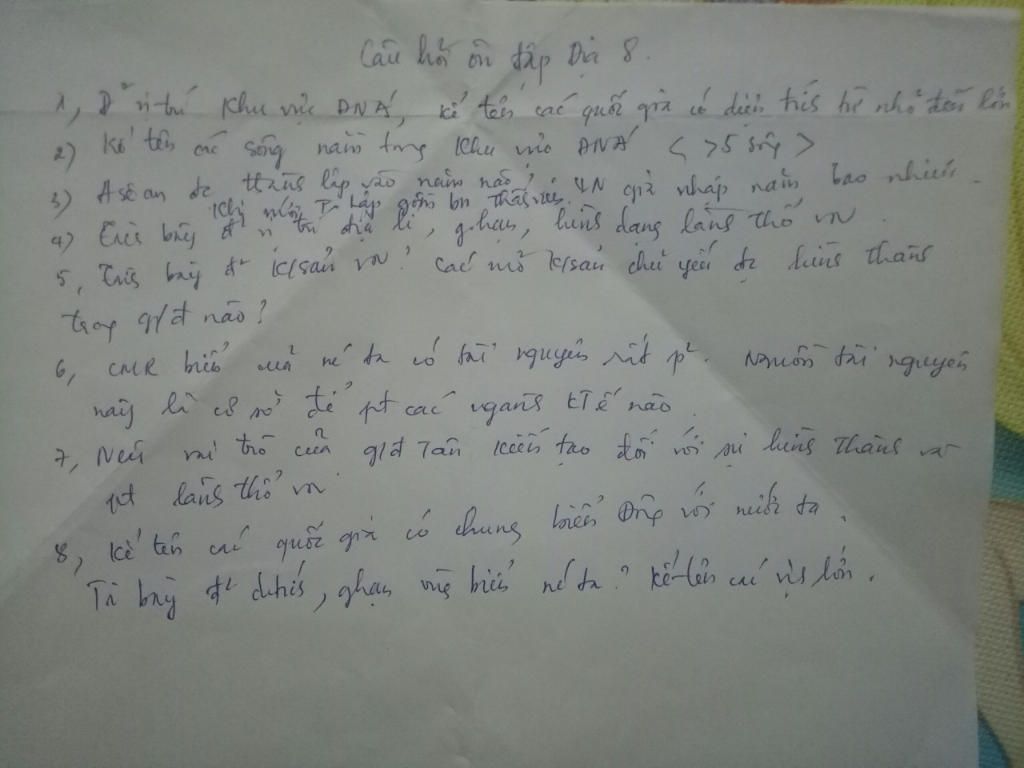 Câu hỏi ôn tập Địa 8.
1, Đ² vị trí khu vực ĐNÁ, kể tên các quốc gia có diện tích từ nhỏ đến lớn
2) Kể tên các sông nằm trong khu vực ĐNÁ < >5 sông >
3) Asêan đc thành lập vào năm nào? VN gia nhập năm bao nhiêu.
Khi mới T. lập gồm bn thành viên
4) Trình bày đ² vị trí địa lí, g.hạn, hình dạng lãnh thổ VN.
5, Trình bày đ² k/sản VN? Các mỏ k/sản chủ yếu đc hình thành
trong g/đ nào?
6, CMR biển của nc ta có tài nguyên rất p². Nguồn tài nguyên
này là cơ sở để pt các ngành KTế nào.
7, Nêu vai trò của g/đ Tân kiến tạo đối với sự hình thành và
pt lãnh thổ VN
8, Kể tên các quốc gia có chung biển Đông với nước ta.
Tr bày đ² d.tích, g.hạn vùng biển nc ta? Kể tên các vịnh lớn.